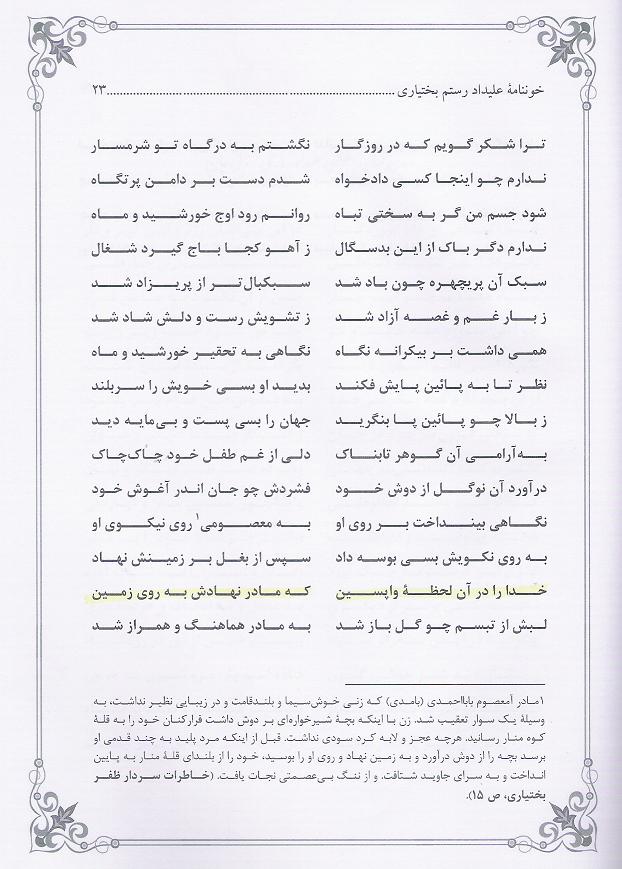 خوننامهٔ علیداد رستم بختیاری ................................................................................۲۳
ترا شکر گویم که در روزگار نگشتم به درگاه تو شرمسار
ندارم چو اینجا کسی دادخواه شدم دست بر دامن پرتگاه
شود جسم من گر به سختی تباه روانم رود اوج خورشید و ماه
ندارم دگر باک از این بدسگال ز آهو کجا باج گیرد شغال
سبک آن پریچهره چون باد شد سبکبال‌تر از پریزاد شد
ز بار غم و غصه آزاد شد ز تشویش رست و دلش شاد شد
همی داشت بر بیکرانه نگاه نگاهی به تحقیر خورشید و ماه
نظر تا به پائین پایش فکند بدید او بسی خویش را سربلند
ز بالا چو پائین پا بنگرید جهان را بسی پست و بی‌مایه دید
به‌آرامی آن گوهر تابناک دلی از غم طفل خود چاک‌چاک
درآورد آن نوگل از دوش خود فشردش چو جان اندر آغوش خود
نگاهی بینداخت بر روی او به معصومی۱ روی نیکوی او
به روی نکویش بسی بوسه داد سپس از بغل بر زمینش نهاد
خدا را در آن لحظهٔ واپسین که مادر نهادش به روی زمین
لبش از تبسم چو گل باز شد به مادر هماهنگ و همراز شد
۱مادر آمعصوم بابااحمدی (بامدی) که زنی خوش‌سیما و بلندقامت و در زیبایی نظیر نداشت، به
وسیلهٔ یک سوار تعقیب شد. زن با اینکه بچهٔ شیرخواره‌ای بر دوش داشت فرارکنان خود را به قلهٔ
کوه منار رسانید. هرچه عجز و لابه کرد سودی نداشت. قبل از اینکه مرد پلید به چند قدمی او
برسد بچه را از دوش درآورد و به زمین نهاد و روی او را بوسید، خود را از بلندای قلهٔ منار به پایین
انداخت و به سرای جاوید شتافت. و از ننگ بی‌عصمتی نجات یافت. (خاطرات سردار ظفر
بختیاری، ص ۱۵).